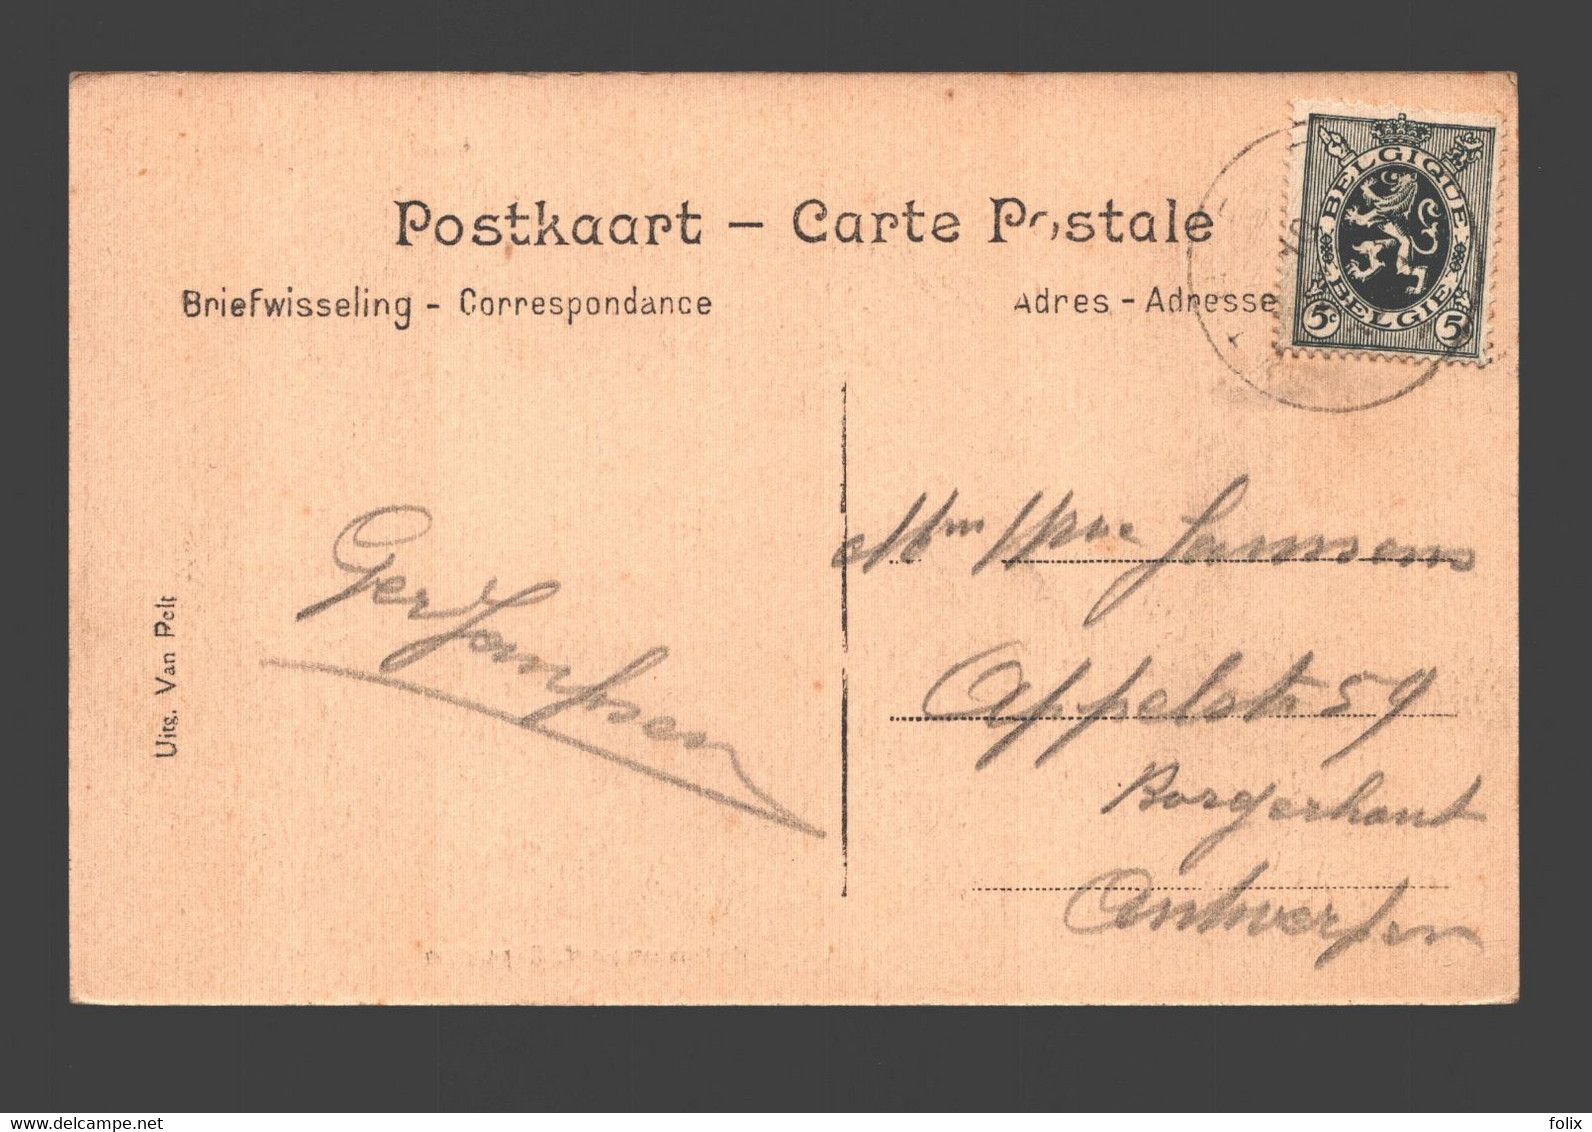 Postkaart – Carte Postale
Briefwisseling - Correspondance
Adres - Adresse
BELGIQUE
BELGIE
5c 5c
Ger Janssen
Uitg. Van Pelt
Janssens
Appelstr 59
Borgerhout
Antwerpen
www.delcampe.net
folix